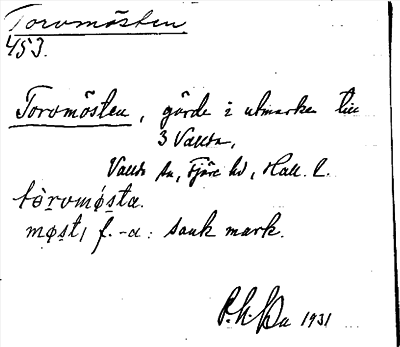 Torvmösten
453.
Torvmösten, gärde i utmarken till
3 Vallda,
Vallda sn, Fjäre hd, Hall. l.
tòrvmø̀sta.
møst, f. -a: sank mark.
1931